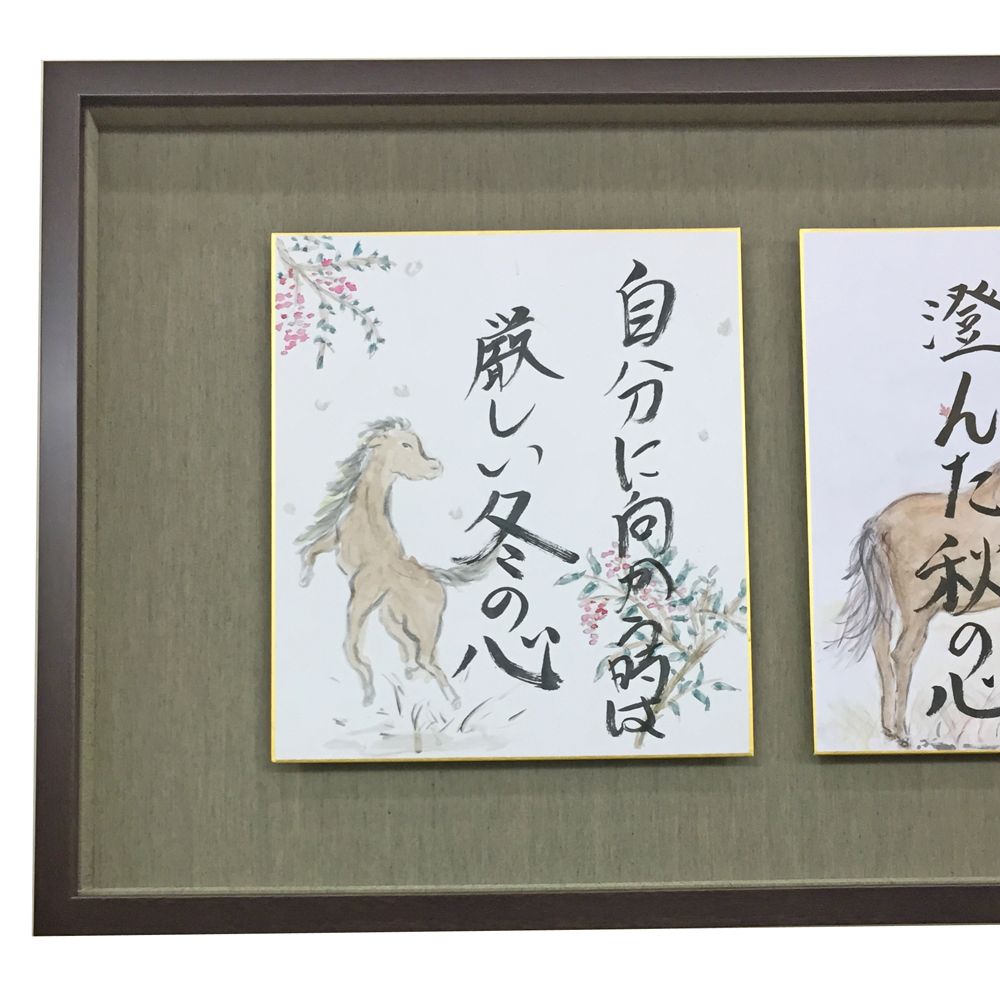 澄んだ秋の心
自分に向かう時は
厳しい冬の心